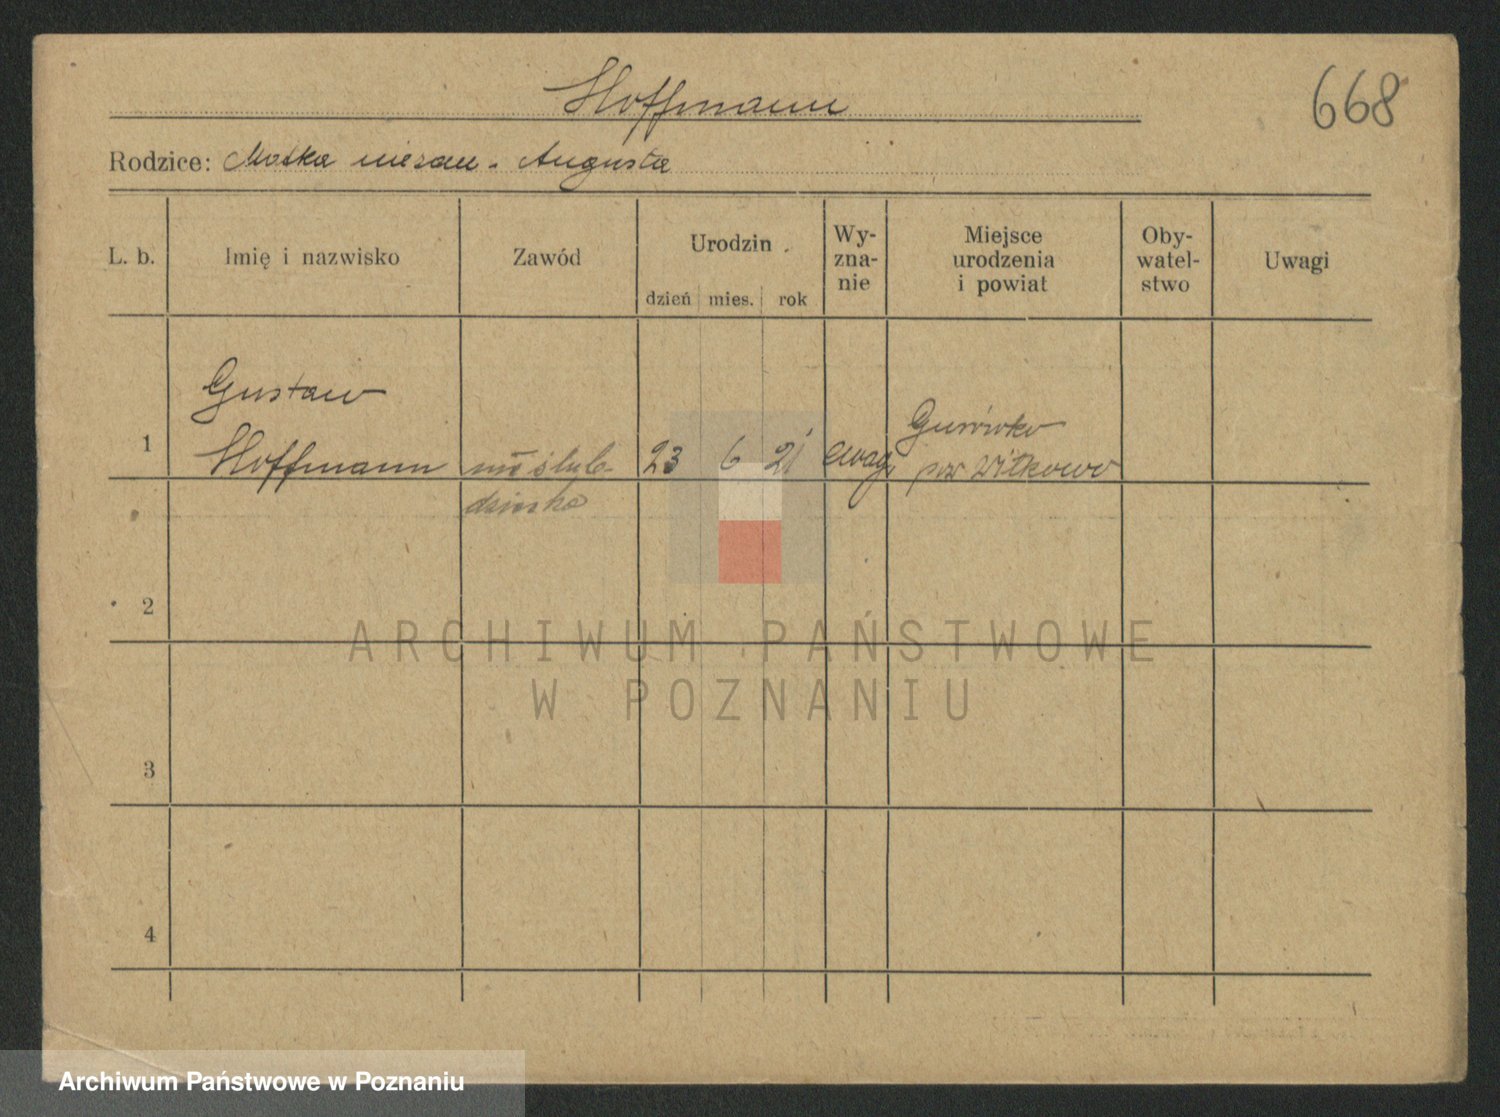 Hoffmann
668
Rodzice: Matka niezam. Augusta
L. b.
Imię i nazwisko
Zawód
Urodzin
dzień mies. rok
Wy-
zna-
nie
Miejsce
urodzenia
i powiat
Oby-
watel-
stwo
Uwagi
1
Gustaw
Hoffmann
nieślub-
dziecko
23 6 21
ewag,
pow Witkowo
2
3
4
ARCHIWUM PAŃSTWOWE
W POZNANIU
Archiwum Państwowe w Poznaniu